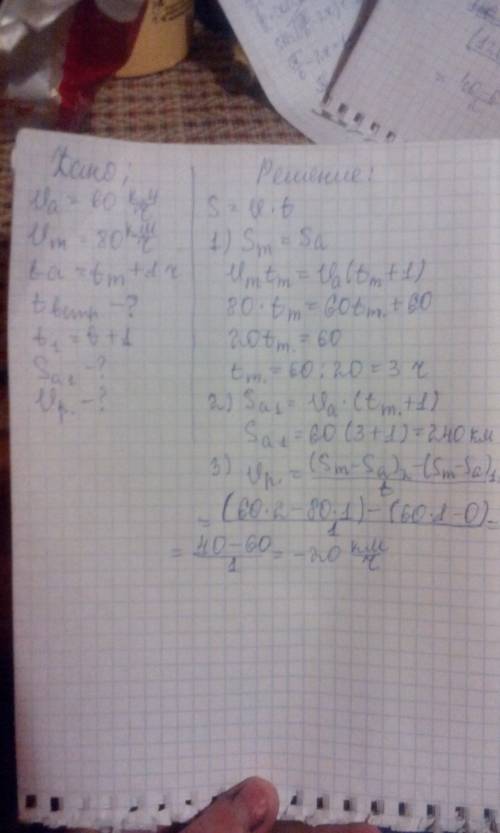 Дано:
Vа = 60 км/ч
Vм = 80 км/ч
tа = tм + 1 ч
tвстр -?
t1 = t + 1
Sа1 -?
Vр. -?
Решение:
S = V · t
1) Sм = Sа
Vм tм = Vа (tм + 1)
80 · tм = 60tм + 60
20tм = 60
tм = 60 : 20 = 3 ч
2) Sа1 = Vа · (tм + 1)
Sа1 = 60 (3 + 1) = 240 км
3) Vр. = (Sм - Sа)2 - (Sм - Sа)1 / t
= (60·2 - 80·1) - (60·1 - 0) / 1 =
= 40 - 60 / 1 = -20 км/ч